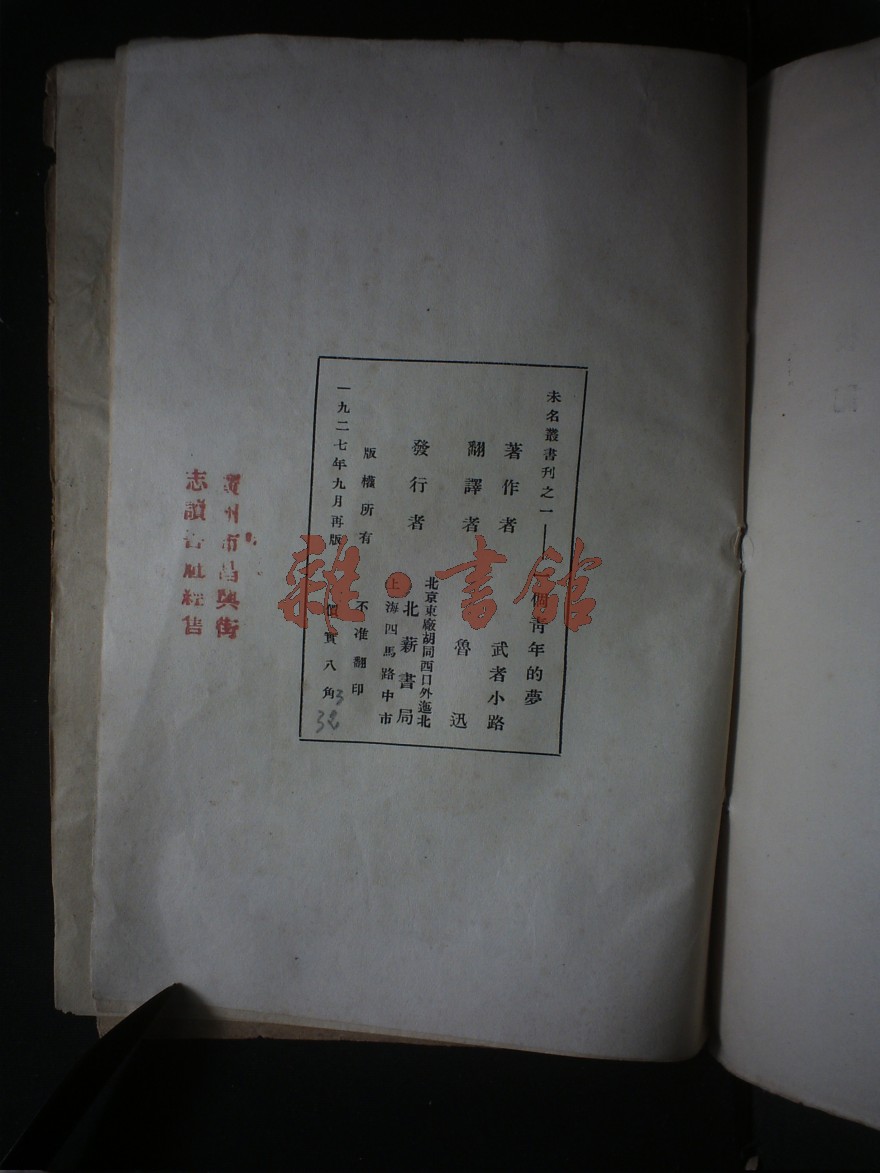 未名叢書刊之一——一個青年的夢
著作者 武者小路
翻譯者 魯迅
發行者
北京東廠胡同西口外迤北
北新書局
上海四馬路中市
版權所有 不准翻印
一九二七年九月再版 價實八角
3
32
州市昌興街
志讀書社經售
雜·書館